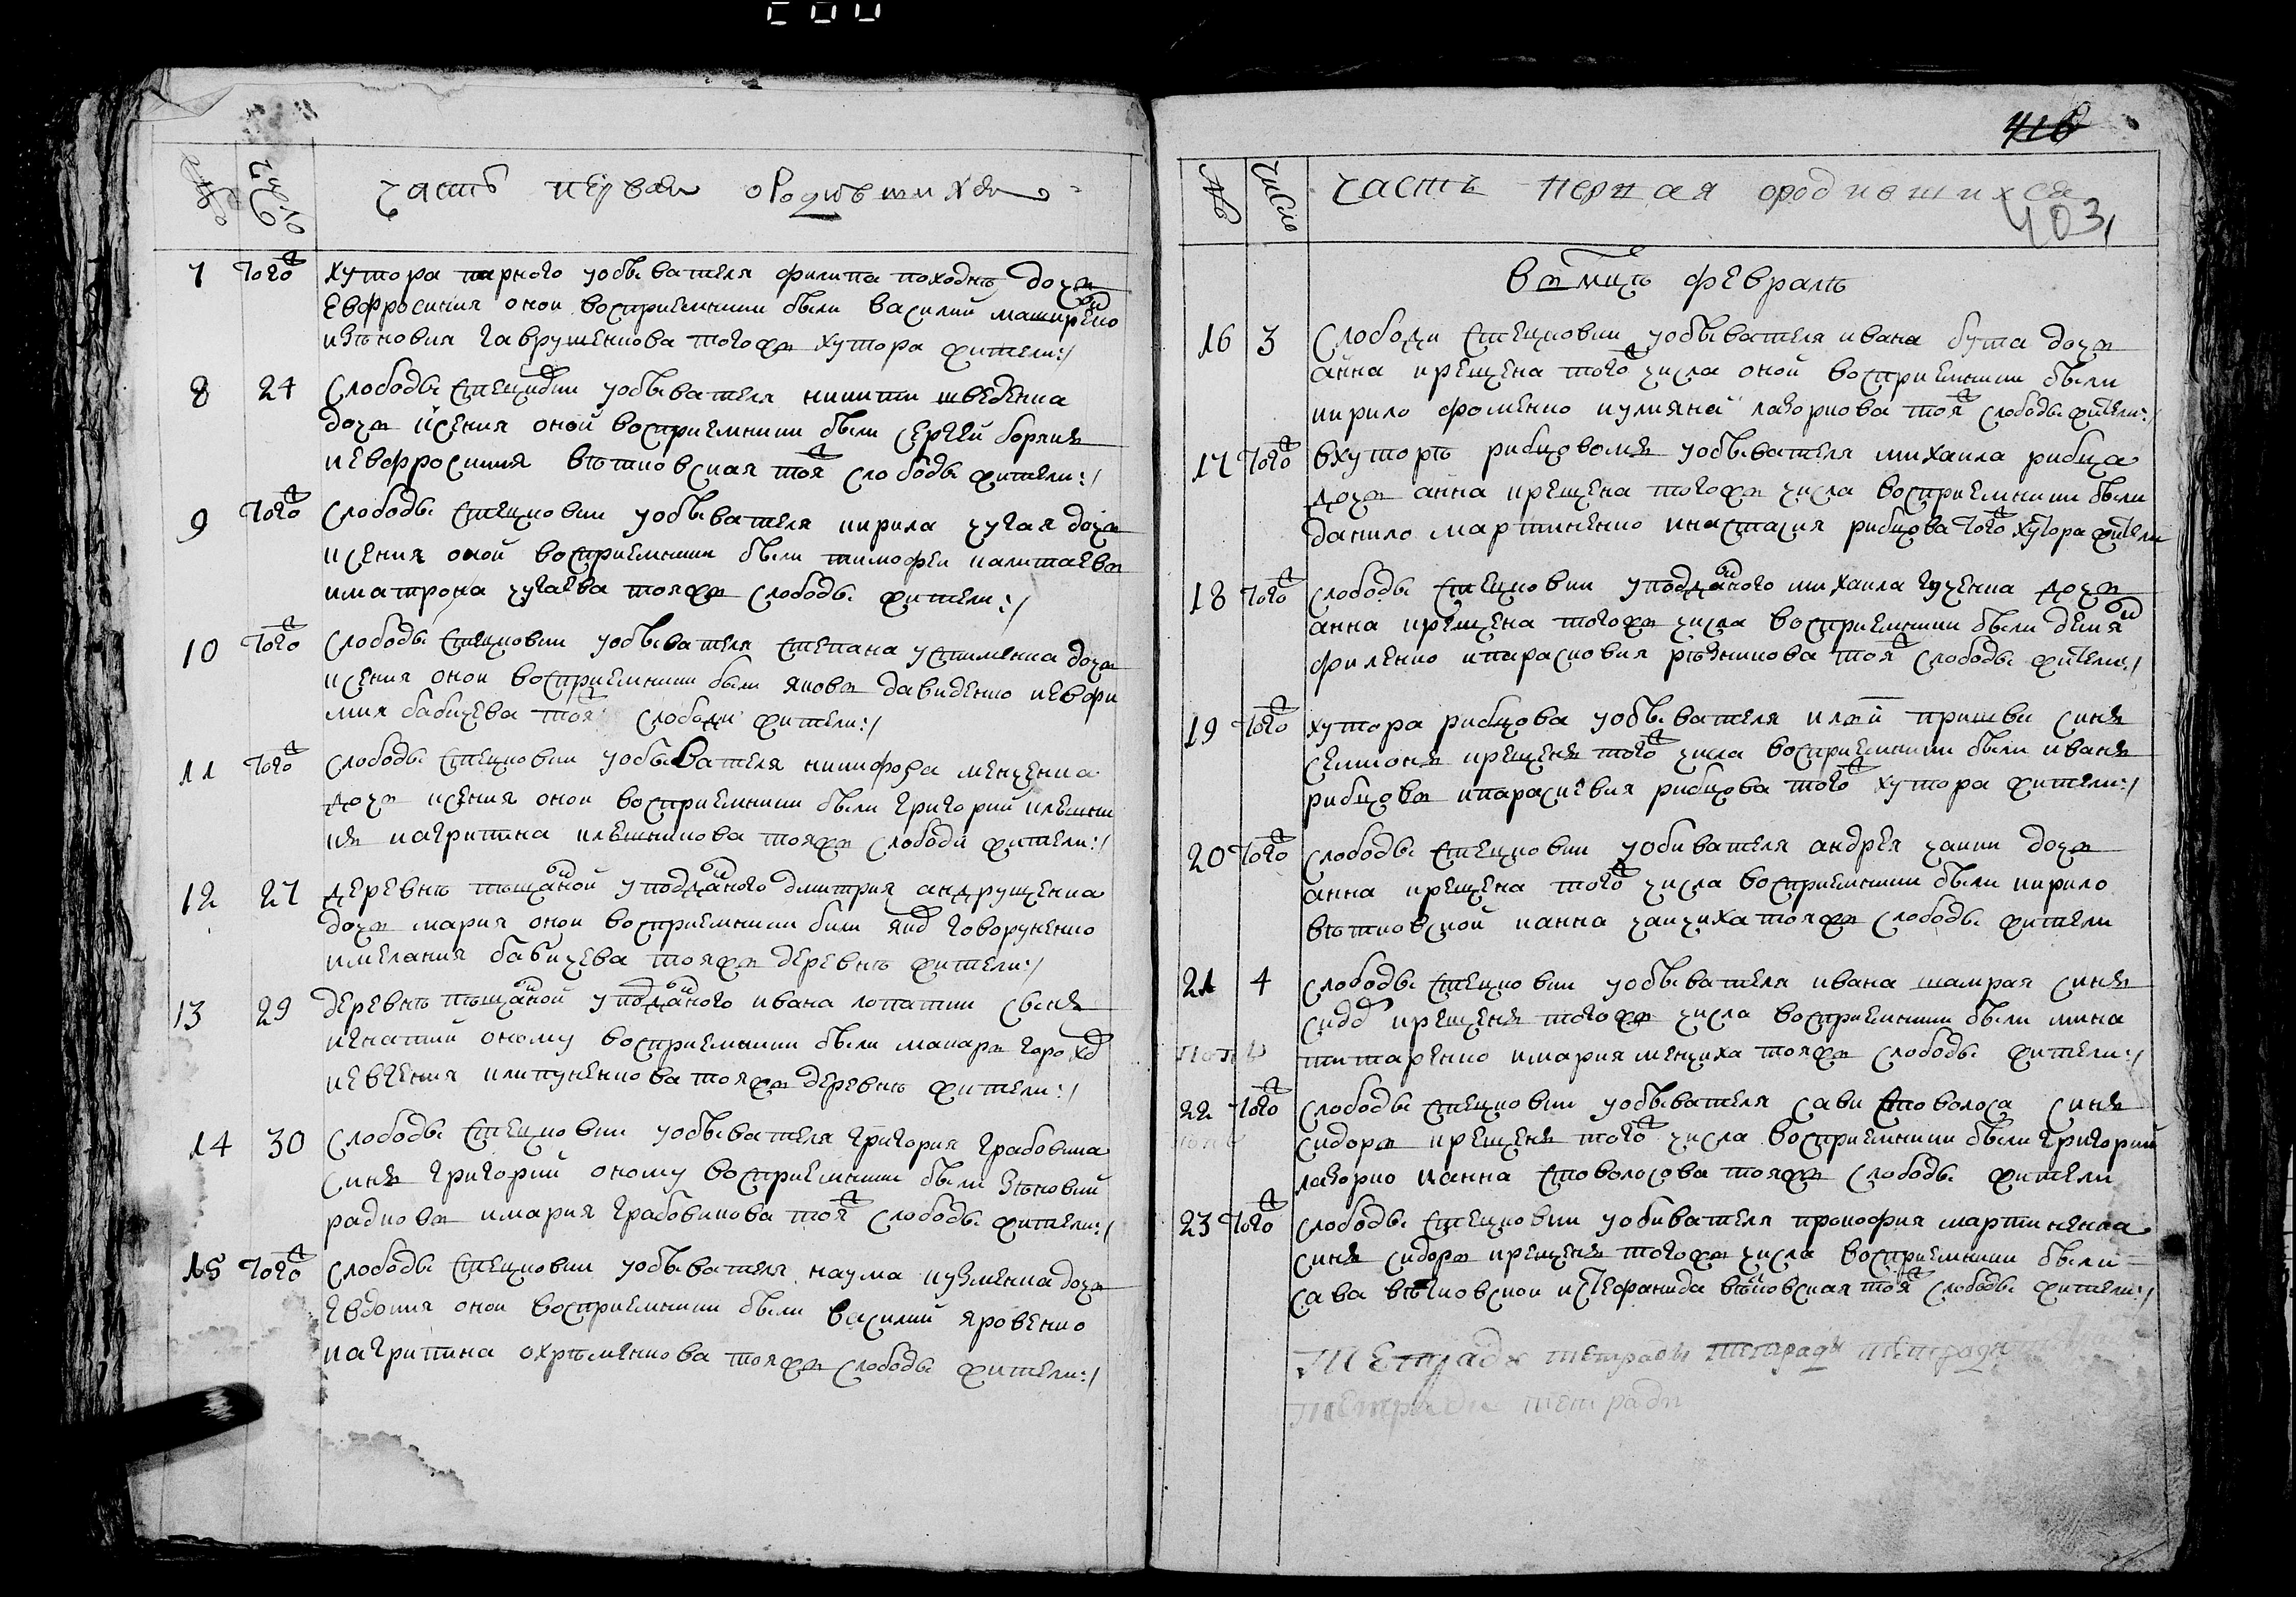 № число часть первая ородившихся
7 того хутора парного уобывателя филипа походнѣ дочъ
Евфросиния оной восприемники были василий макаренко
изѣновия гаврушенкова тогожъ хутора жители:/
8 24 Слободы стецковки уобывателя никити шведенка
дочъ ксения оной восприемники были сергей борякъ
иевфросиния вѣтковская тояж слободы жители:/
9 тогож Слободы стецковки уобывателя кирила чугая дочъ
ксения оной восприемники были тимофей калитаевъ
иматрона чугаева тояжъ слободы жители:/
10 тогож Слободы стецковки уобывателя степана устименка дочъ
ксения оной восприемники были яковъ давиденко иевфи
мия бабичева тояж слободи жители:/
11 тогож Слободы стецковки уобывателя никифора менченка
дочъ ксения оной восприемники были григорий клешни
къ иагрипина клешникова тояжъ слободи жители:/
12 27 деревнѣ пѣщаной уподданого димитрия андрущенка
дочъ мария оной восприемники били яков говоруненко
имелания бабичева тояжъ деревнѣ жители:/
13 29 деревнѣ пѣщаной уподданого ивана лопатки сынъ
игнатий оному восприемники были макаръ горохов
иевгения клипуненкова тояжъ деревнѣ жители:/
14 30 Слободы стецковки уобывателя григория грабовика
синъ григорий оному восприемники были зѣновий
радковъ имария грабовикова тояж слободы жители:/
15 тогож Слободы стецковки уобывателя наума кузменка дочъ
Евдокия оной восприемники были василий яровенко
иагрипина охрѣменкова тояжъ слободы жители:/
418
403
№ число часть первая ородившихся
въ мцѣ февралѣ
16 3 Слободи стецковки уобывателя ивана бута дочъ
анна крещена того ж числа оной восприемники были
кирило фоменко иулияна лазоркова тояж слободы жители:/
17 тогож вхуторѣ рибцовомъ уобывателя михаила рибца
дочъ анна крещена тогожъ числа восприемники были
данило мартиненко инастасия рибцова тогож хутора жители
18 тогож слободы стецковки уподданого михаила гученка дочъ
анна крещена тогожъ числа восприемники были демян
филенко ипарасковия рѣзникова тояж слободы жители:/
19 тогож хутора рибцова уобывателя илии пришви синъ
семионъ крещенъ того ж числа восприемники были иванъ
рибцовъ ипараскевия рибцова того ж хутора жители:/
20 тогож слободы стецковки уобивателя андрея чапки дочъ
анна крещена того ж числа восприемники были кирило
вѣтковской ианна чапчиха тояжъ слободы жители
21 4 слободы стецковки уобывателя ивана шамрая синъ
сидор крещенъ тогожъ числа восприемники были мина
титаренко имария менчиха тояжъ слободы жители:/
22 тогож слободы стецковки уобывателя сави стоволоса синъ
сидоръ крещенъ того ж числа восприемники были григорий
лазорко ианна стоволосова тояжъ слободы жители
23 тогож слободы стецковки уобивателя прокофия мартиненка
синъ сидоръ крещенъ тогожъ числа восприемники были
сава вѣтковской истефанида вѣтковская тояж слободы жители:/
тетради тетради тетради тетради
тетради тетради